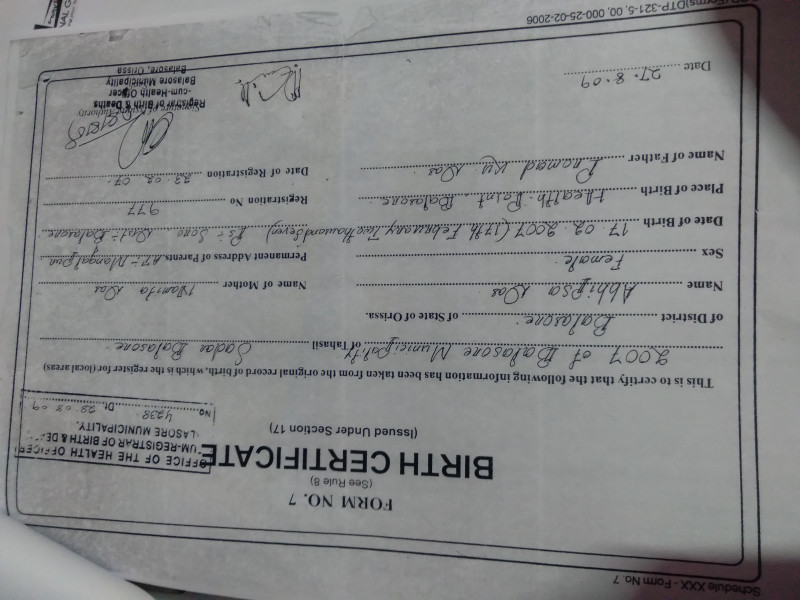 Schedule XXX - Form No. 7
FORM NO. 7
(See Rule 8)
BIRTH CERTIFICATE
(Issued Under Section 17)
OFFICE OF THE HEALTH OFFICER
UM-REGISTRAR OF BIRTH & DE
LASORE MUNICIPALITY.
No. 4238 Dt. 28.08.09
This is to certify that the following information has been taken from the original record of birth, which is the register for (local areas)
2007 of Balasore Municipality of Tahasil Sadar Balasore
of District Balasore of State of Orissa.
Name Abhipsa Das Name of Mother Namita Das
Sex Female Permanent Address of Parents, AT- Mangalpur
Date of Birth 17.02.2007 (17th February Two thousand seven) Ps- Soro Dist- Balasore
Place of Birth Health Point, Balasore Registration No 977
Name of Father Pramod Ku Das Date of Registration 22.02.07.
Signature of Authority
Date 27.8.09
Registrar of Birth & Deaths
-cum-Health Officer
Balasore Municipality
Balasore, Orissa
(Forms)DTP-321-5, 00, 000-25-02-2006